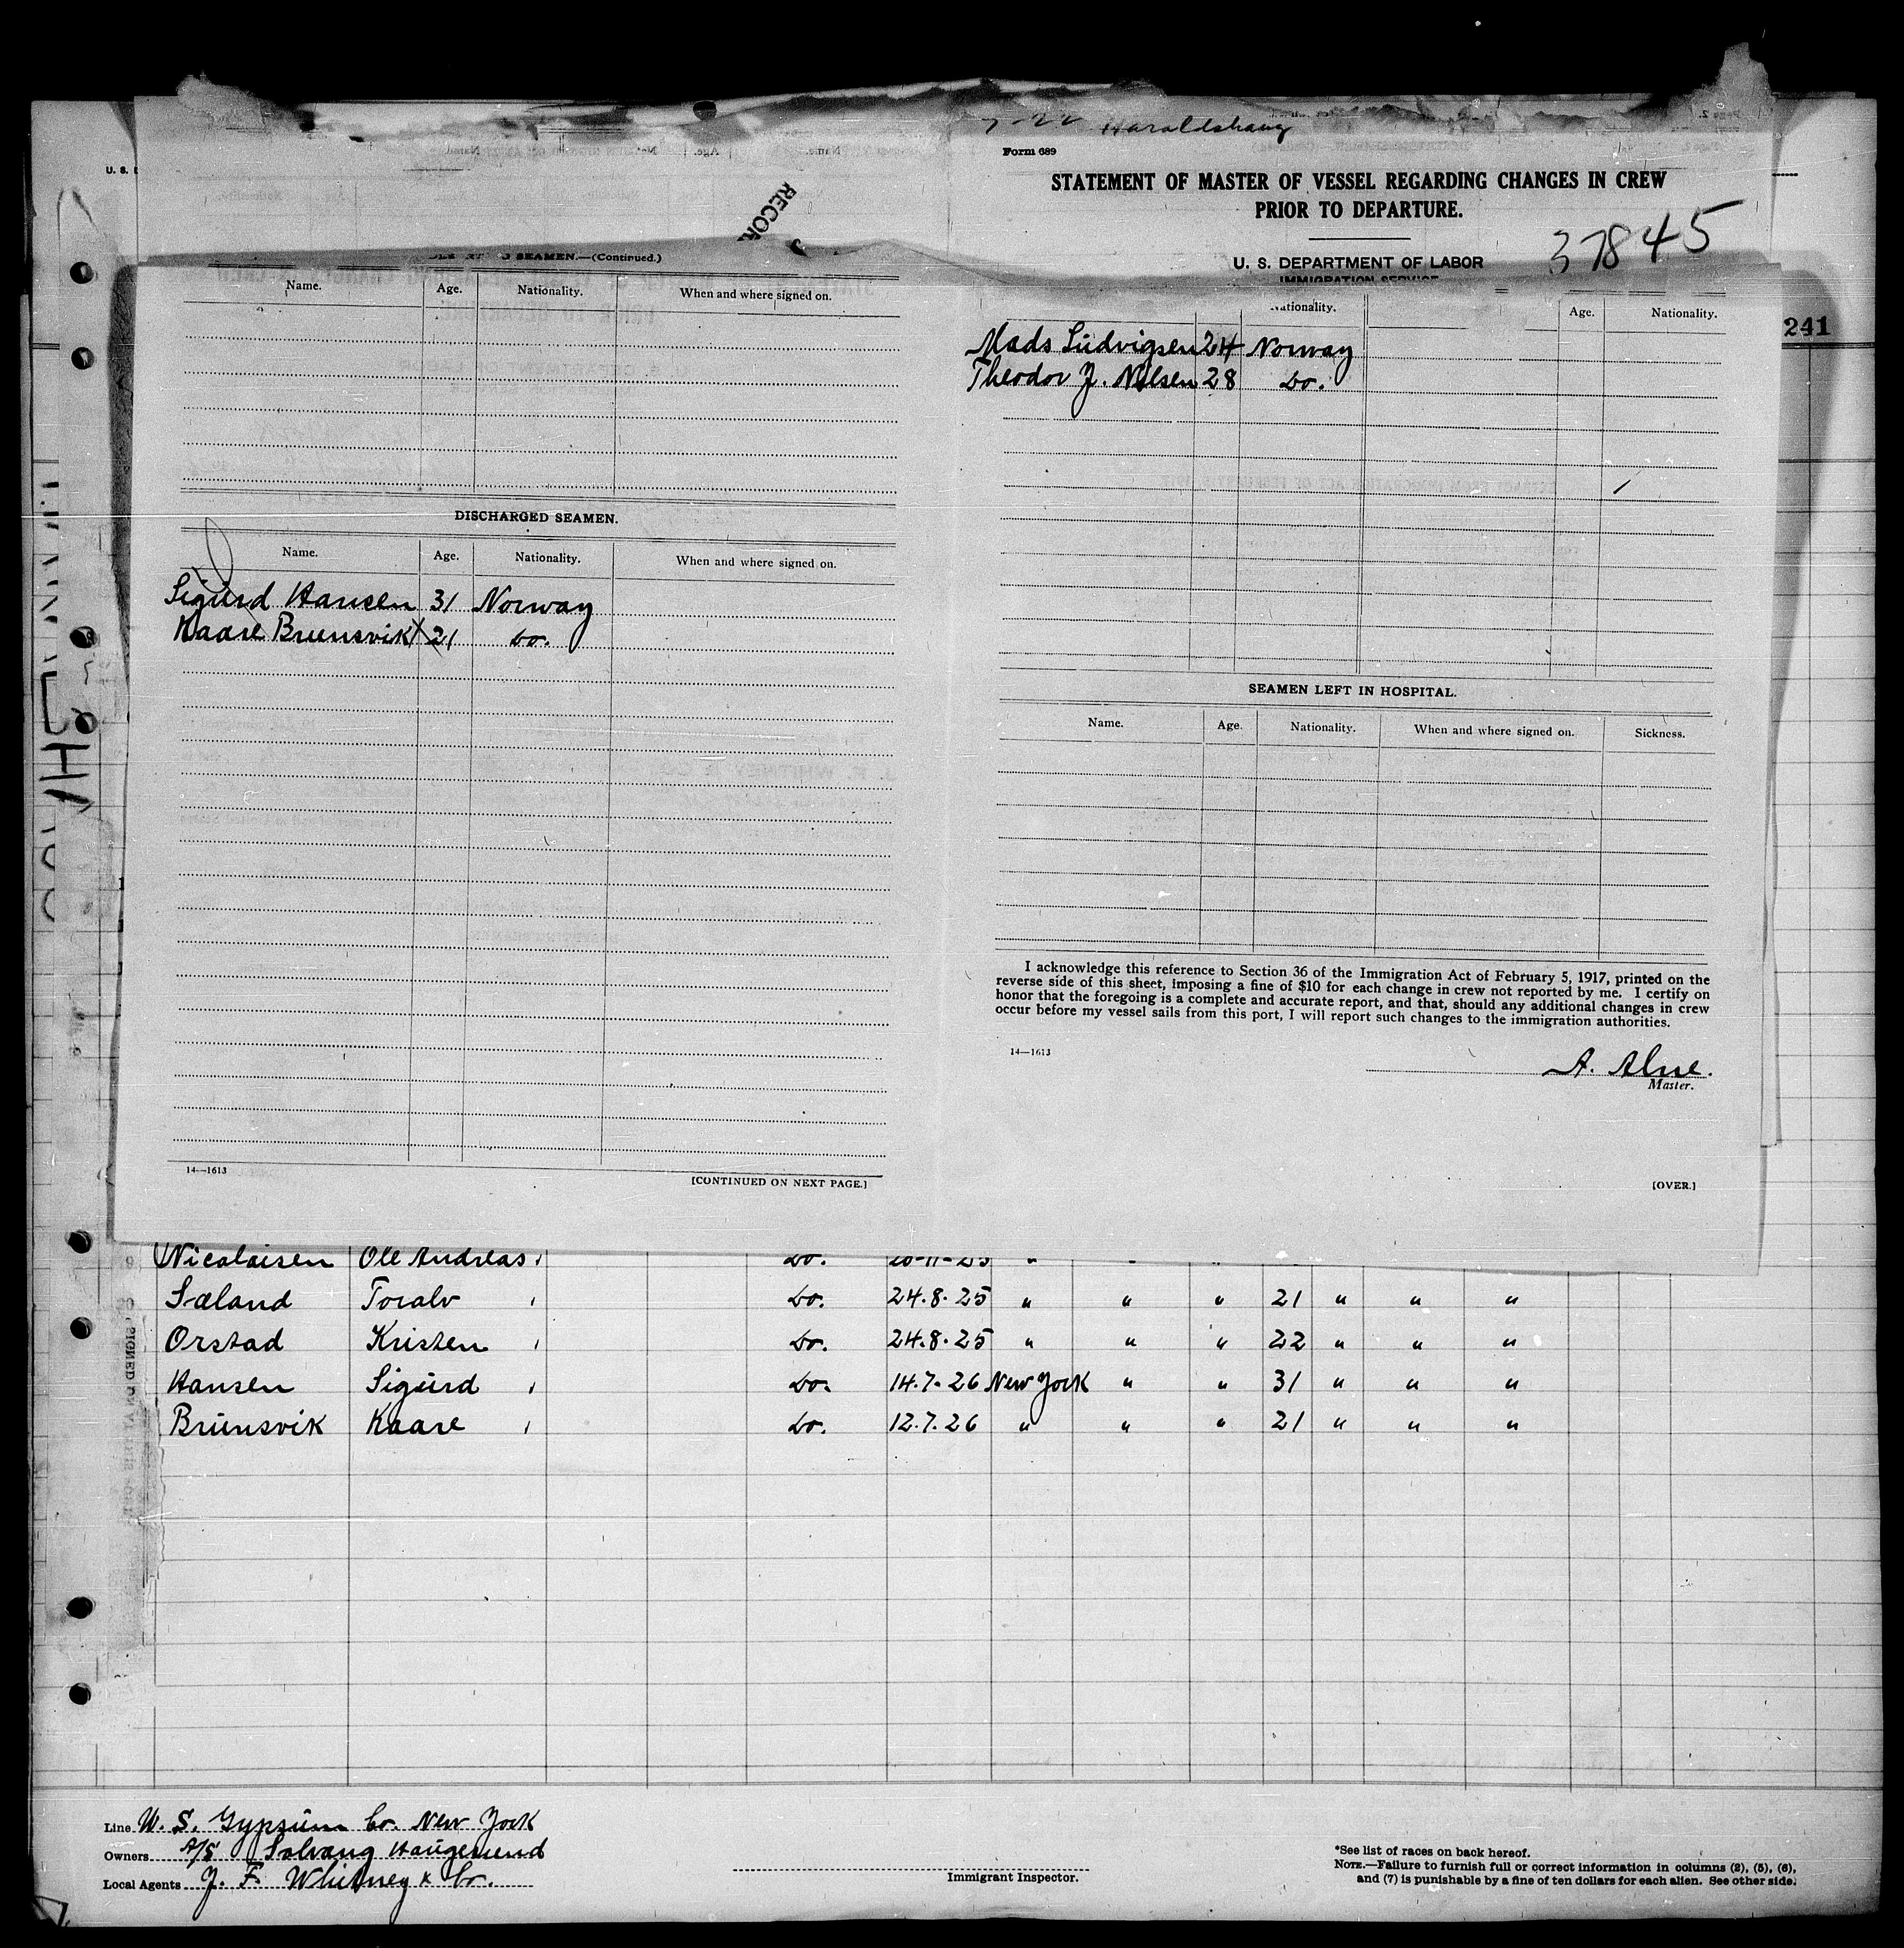 Haraldshaug
Form 689
STATEMENT OF MASTER OF VESSEL REGARDING CHANGES IN CREW
PRIOR TO DEPARTURE.
37845
U. S. DEPARTMENT OF LABOR
IMMIGRATION SERVICE
U. S.
RECOR
241
SEAMEN.—(Continued.)
Name. Age. Nationality. When and where signed on.
DISCHARGED SEAMEN.
Name. Age. Nationality. When and where signed on.
Sigurd Hansen 31 Norway
Kaare Brunsvik 21 do.
14—1613
[CONTINUED ON NEXT PAGE.]
Nationality. Age. Nationality.
Mads Ludvigsen 24 Norway
Theodor J. Nilsen 28 do.
SEAMEN LEFT IN HOSPITAL.
Name. Age. Nationality. When and where signed on. Sickness.
I acknowledge this reference to Section 36 of the Immigration Act of February 5, 1917, printed on the
reverse side of this sheet, imposing a fine of $10 for each change in crew not reported by me. I certify on
honor that the foregoing is a complete and accurate report, and that, should any additional changes in crew
occur before my vessel sails from this port, I will report such changes to the immigration authorities.
14—1613
A. Alne.
Master.
[OVER.]
Nicolaisen Ole Andreas do. 20-11-25 "
Sæland Toralv do. 24.8.25 " " " 21 " " "
Orstad Kristen do. 24.8.25 " " " 22 " " "
Hansen Sigurd do. 14.7.26 New York " " 31 " " "
Brunsvik Kaare do. 12.7.26 " " " 21 " " "
Line U. S. Gypsum Co. New York
Owners A/S Solvang Haugesund
Local Agents J. F. Whitney & Co.
Immigrant Inspector.
*See list of races on back hereof.
NOTE.—Failure to furnish full or correct information in columns (2), (5), (6),
and (7) is punishable by a fine of ten dollars for each alien. See other side.